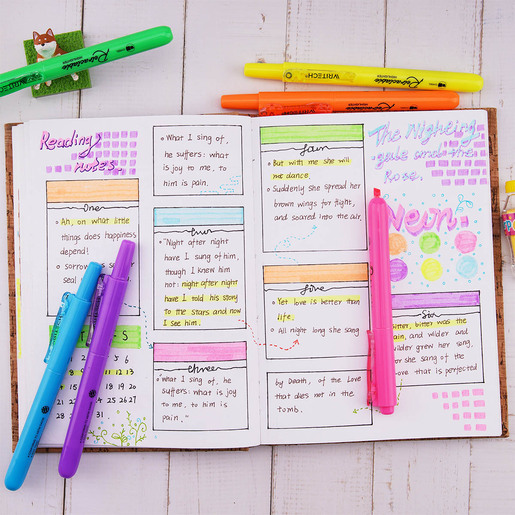 Reading
notes.
One
Ah, on what little
things does happiness
depend!
What I sing of,
he suffers: what is
joy to me, to
him is pain.
"Night after night
have I sung of him,
though I knew him
not: night after night
have I told his story
to the stars and now
I see him.
three
"What I sing of, he
suffers: what is joy
to me, to him is
pain,"
But with me she will
not dance.
Suddenly she spread her
brown wings for flight,
and soared into the air.
five
Yet love is better than
life.
All night long she sang
by Death, of the Love
that dies not in the
tomb.
The Nighting
gale and the
Rose.
Neon
Six
bitter was the
and wilder and
wilder grew her song,
for she sang of the
that is perfected
Retractable
WRITECH
Retractable
Retractable